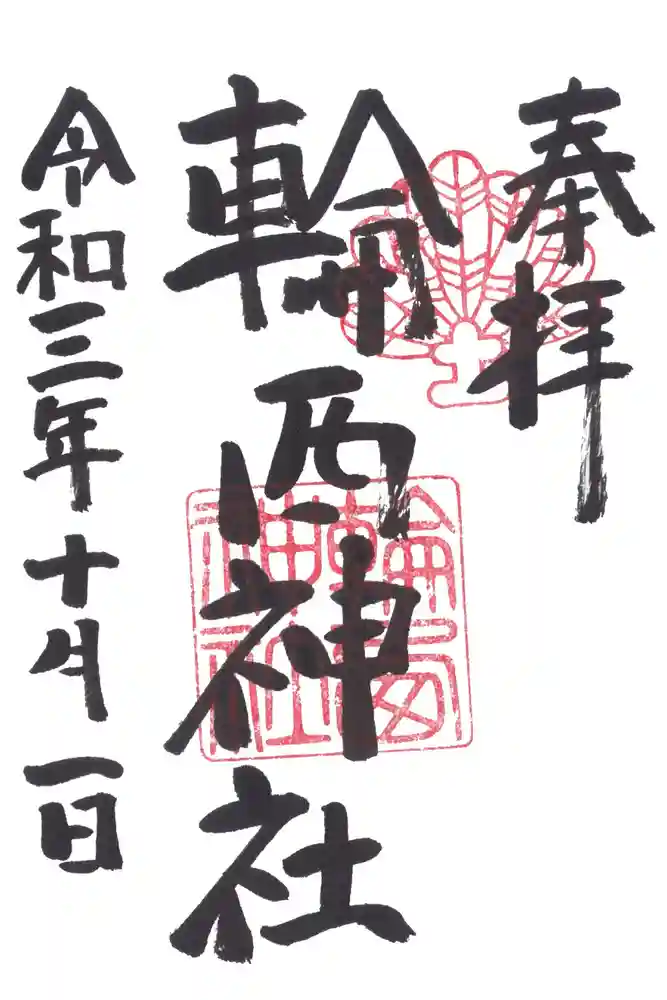 奉拝
輪西神社
輪西神社
令和三年十月一日